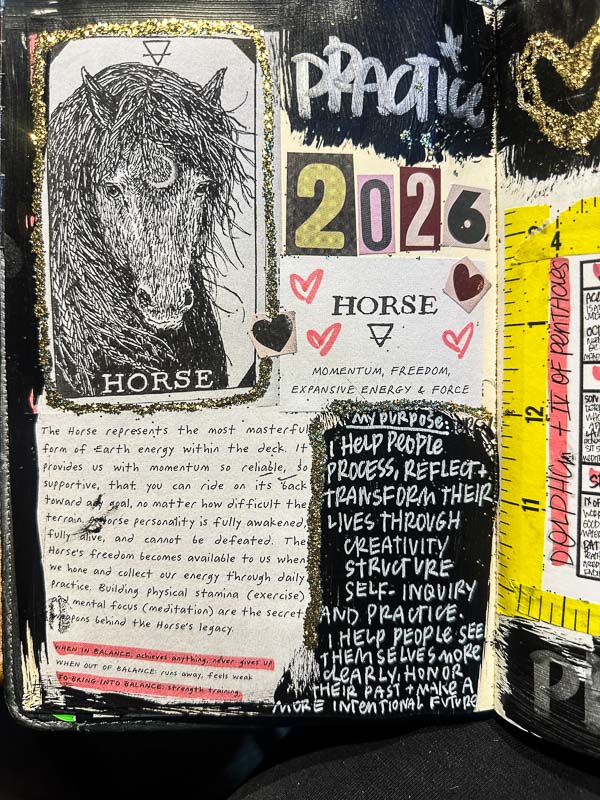 HORSE
PRACTICE
2026
HORSE
MOMENTUM, FREEDOM,
EXPANSIVE ENERGY & FORCE
The Horse represents the most masterful
form of Earth energy within the deck. It
provides us with momentum so reliable, so
supportive, that you can ride on its back
toward any goal, no matter how difficult the
terrain. A Horse personality is fully awakened,
fully alive, and cannot be defeated. The
Horse's freedom becomes available to us when
we hone and collect our energy through daily
practice. Building physical stamina (exercise)
and mental focus (meditation) are the secret
weapons behind the Horse's legacy.
WHEN IN BALANCE: achieves anything, never gives up
WHEN OUT OF BALANCE: runs away, feels weak
TO BRING INTO BALANCE: strength training
MY PURPOSE:
I HELP PEOPLE
PROCESS, REFLECT +
TRANSFORM THEIR
LIVES THROUGH
CREATIVITY
STRUCTURE
SELF-INQUIRY
AND PRACTICE.
I HELP PEOPLE SEE
THEMSELVES MORE
CLEARLY, HONOR
THEIR PAST + MAKE A
MORE INTENTIONAL FUTURE
4
1
12
11
DOLPHIN + IX OF PENTACLES